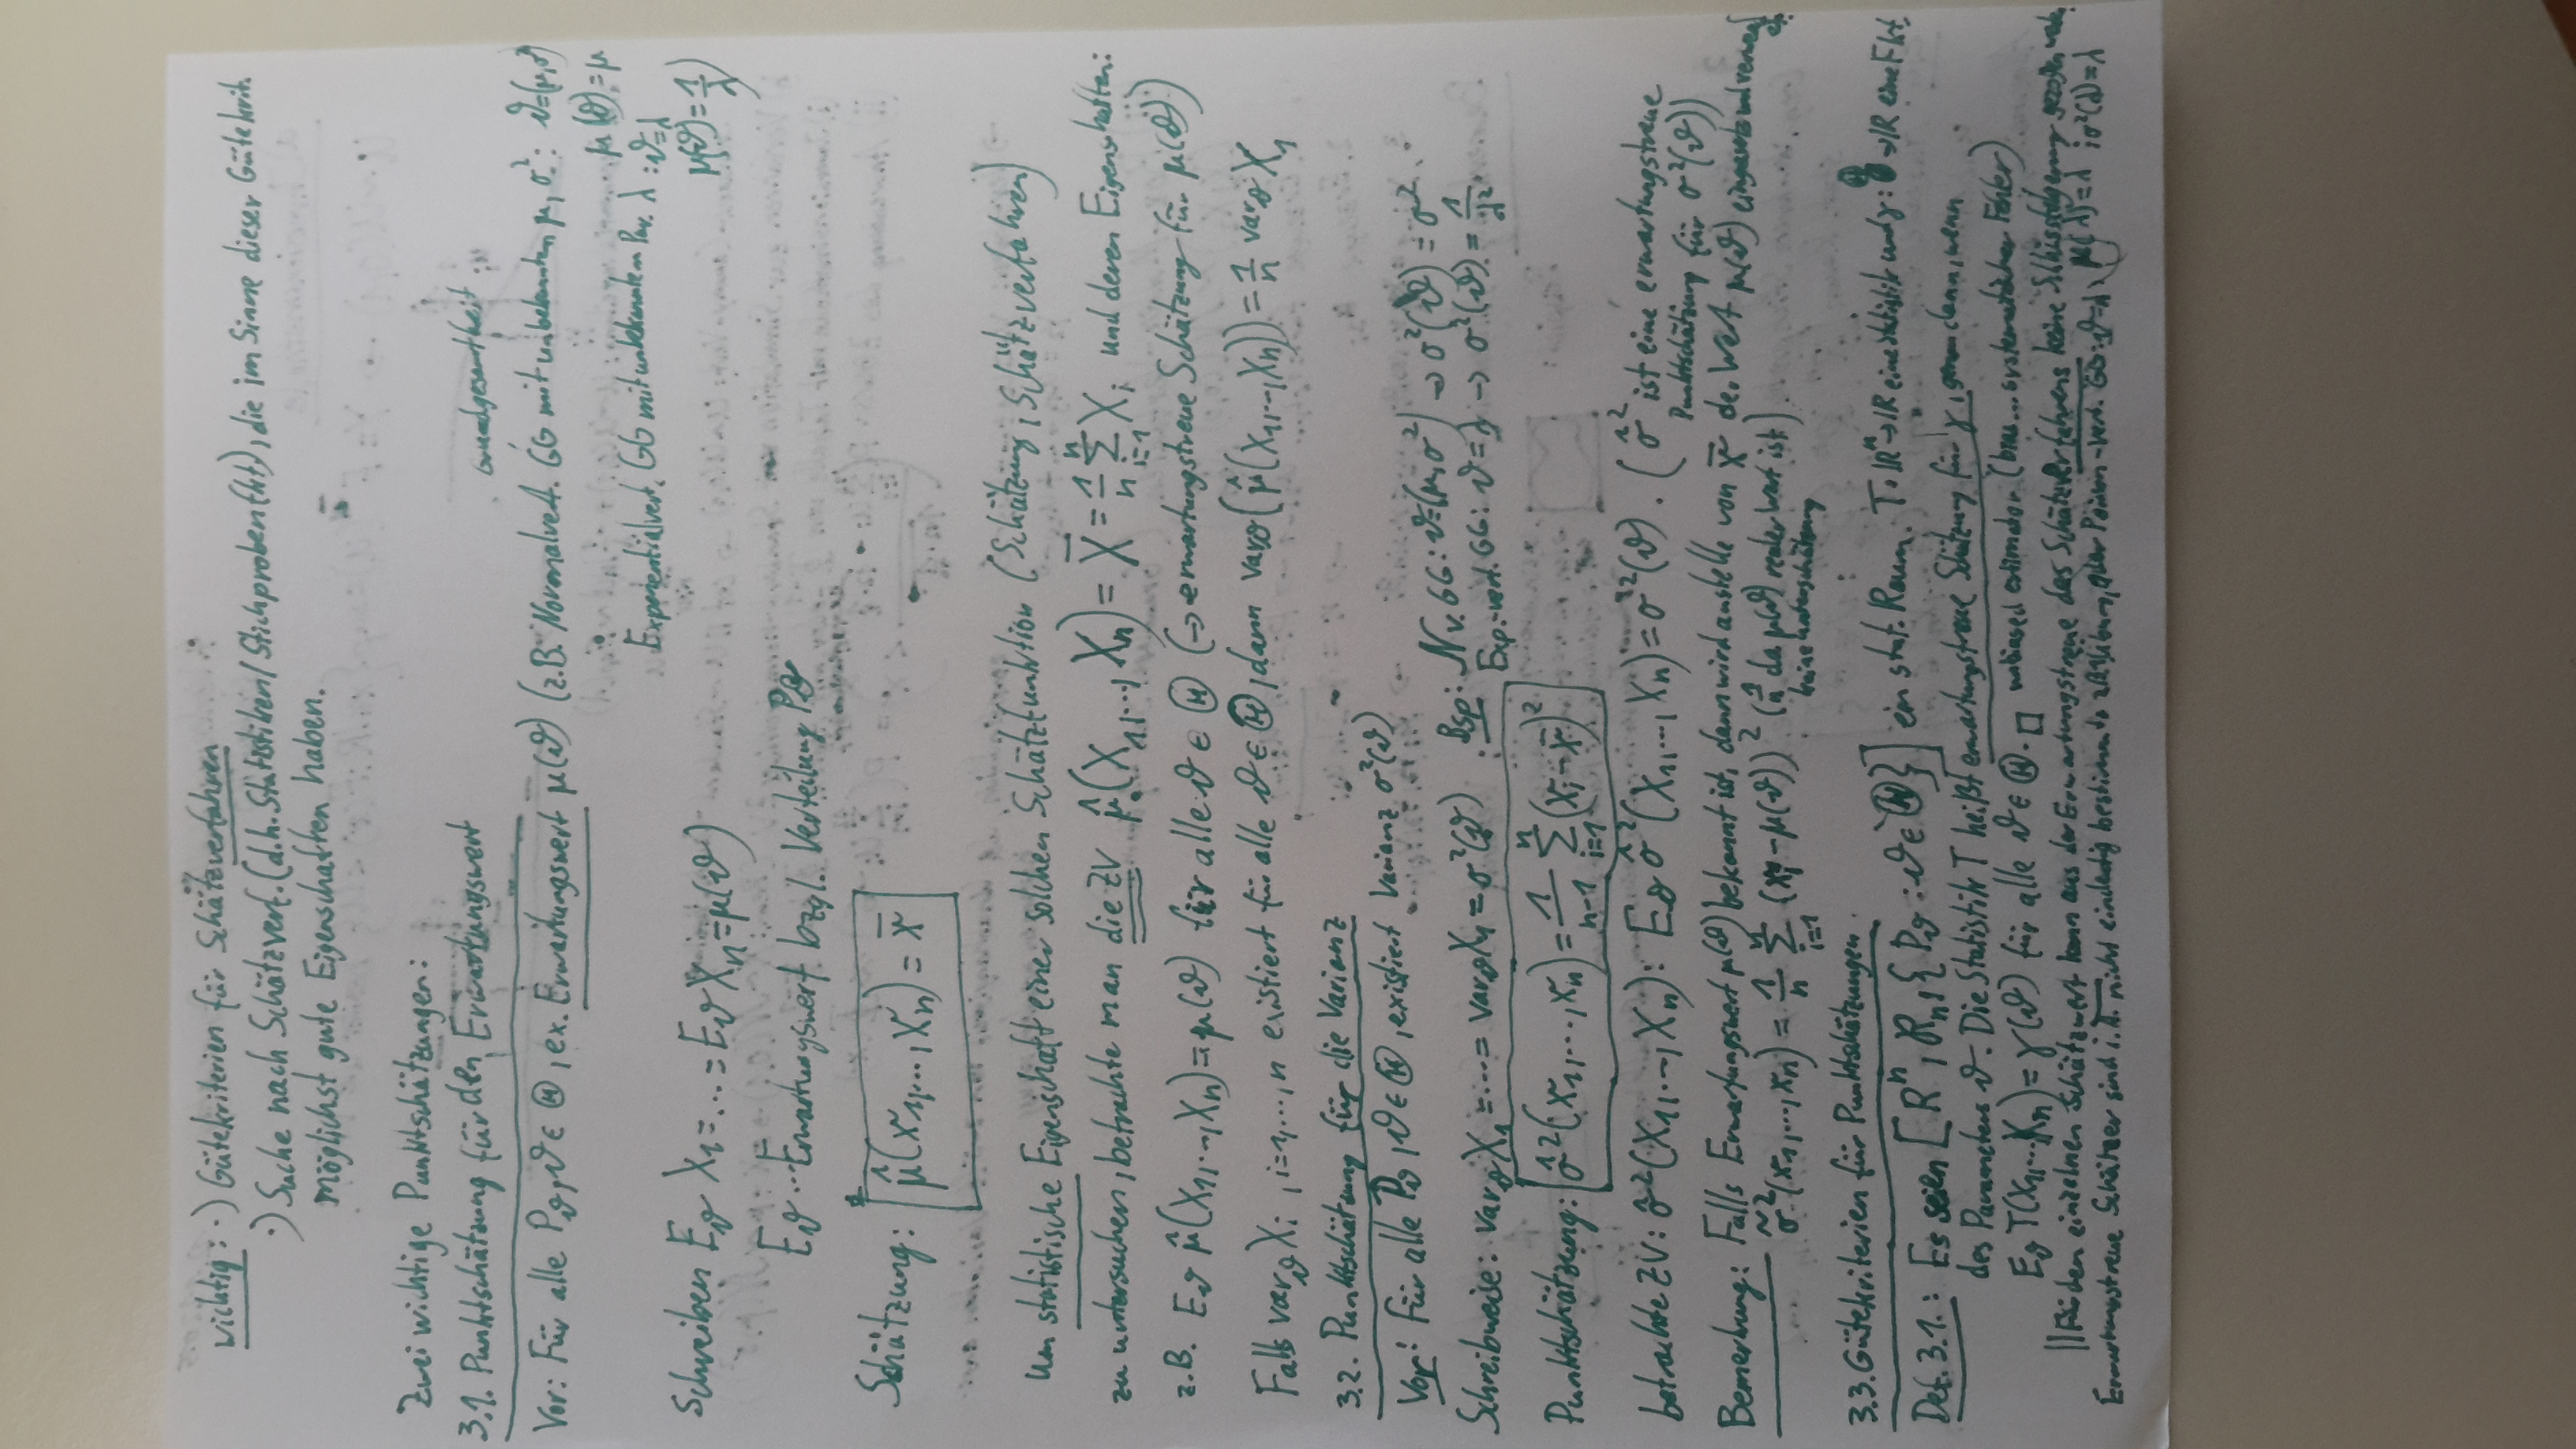 wichtig: ·) Gütekriterien für Schätzverfahren
·) Suche nach Schätzverf. (d.h. Statistiken/Stichprobenfkt), die im Sinne dieser Gütekrit.
möglichst gute Eigenschaften haben.
Zwei wichtige Punktschätzungen:
3.1. Punktschätzung für den Erwartungswert
Grundgesamtheit
Vor: Für alle P_ϑ, ϑ ∈ Θ, ex. Erwartungswert μ(ϑ) (z.B. Normalvert. GG mit unbekannten μ, σ²: ϑ=(μ,σ²)
μ(ϑ)=μ
Exponentialvert. GG mit unbekanntem Par. λ: ϑ=λ
μ(ϑ)=1/λ)
Schreiben E_ϑ X₁=...=E_ϑ X_n=μ(ϑ)
E_ϑ ... Erwartungswert bzgl. Verteilung P_ϑ
Schätzung: μ̂(x₁,...,x_n) = x̄
Um statistische Eigenschaft einer solchen Schätzfunktion (Schätzung, Schätzverfahren)
zu untersuchen, betrachte man die ZV μ̂(X₁,...,X_n) = X̄ = 1/n ∑_{i=1}^n X_i und deren Eigenschaften:
z.B. E_ϑ μ̂(X₁,...,X_n)=μ(ϑ) für alle ϑ ∈ Θ (→ erwartungstreue Schätzung für μ(ϑ))
Falls var_ϑ X_i, i=1,...,n existiert für alle ϑ ∈ Θ, dann var_ϑ(μ̂(X₁,...,X_n)) = 1/n var_ϑ X₁
3.2. Punktschätzung für die Varianz
Vor: Für alle P_ϑ, ϑ ∈ Θ, existiert Varianz σ²(ϑ)
Schreibweise: var_ϑ X₁ = ... = var_ϑ X₁ = σ²(ϑ) Bsp: Nv. GG: ϑ=(μ,σ²) → σ²(ϑ) = σ²
Exp.-vert. GG: ϑ=λ → σ²(ϑ) = 1/λ²
Punktschätzung: σ̂²(x₁,...,x_n) = 1/(n-1) ∑_{i=1}^n (x_i - x̄)²
betrachte ZV: σ̂²(X₁,...,X_n): E_ϑ σ̂²(X₁,...,X_n) = σ²(ϑ). (σ̂² ist eine erwartungstreue
Punktschätzung für σ²(ϑ))
Bemerkung: Falls Erwartungswert μ(ϑ) bekannt ist, dann wird anstelle von x̄ der Wert μ(ϑ) eingesetzt und
σ̃²(x₁,...,x_n) = 1/n ∑_{i=1}^n (x_i - μ(ϑ))² (1/n da μ(ϑ) realer Wert ist)
keine Unterschätzung
3.3. Gütekriterien für Punktschätzungen
Def. 3.1.: Es seien [R^n, R_n, {P_ϑ : ϑ ∈ Θ}] ein stat. Raum. T: IR^n → IR eine Statistik und γ: → IR eine Fkt.
des Parameters ϑ. Die Statistik T heißt erwartungstreue Schätzung für γ, genau dann, wenn
E_ϑ T(X₁,...,X_n) = γ(ϑ) für alle ϑ ∈ Θ. □ unbiased estimator (bias ... systematischer Fehler)
|| Für den einzelnen Schätzwert kann aus der Erwartungstreue des Schätzverfahrens keine Schlussfolgerung gezogen werden
Erwartungstreue Schätzer sind i.A. nicht eindeutig bestimmt Poisson-vert. GG: ϑ=λ, μ(λ)=λ ; σ²(λ)=λ